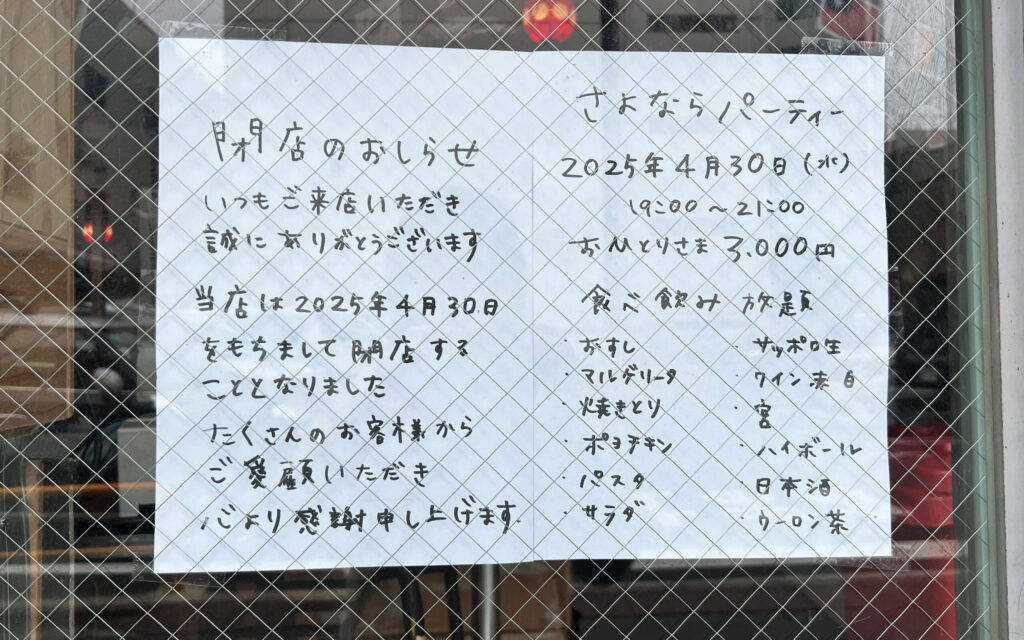 閉店のおしらせ
いつもご来店いただき
誠にありがとうございます
当店は2025年4月30日
をもちまして閉店する
こととなりました
たくさんのお客様から
ご愛顧いただき
心より感謝申し上げます
さよならパーティー
2025年4月30日(水)
19:00～21:00
おひとりさま 3.000円
食べ飲み 放題
・おすし
・マルゲリータ
・焼きとり
・ポヨチキン
・パスタ
・サラダ
・サッポロ生
・ワイン 赤 白
・宮
・ハイボール
・日本酒
・ウーロン茶